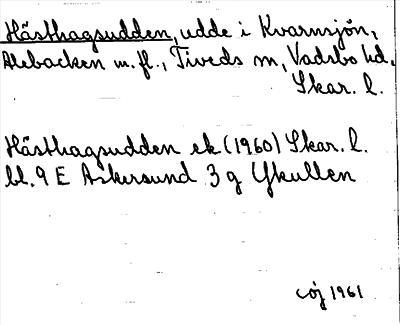 Hästhagsudden, udde i Kvarnsjön,
Alebacken m. fl., Tiveds sn, Vadsbo hd.
Skar. l.
Hästhagsudden ek (1960) Skar. l.
bl. 9 E Askersund 3 g Ykullen
coj 1961